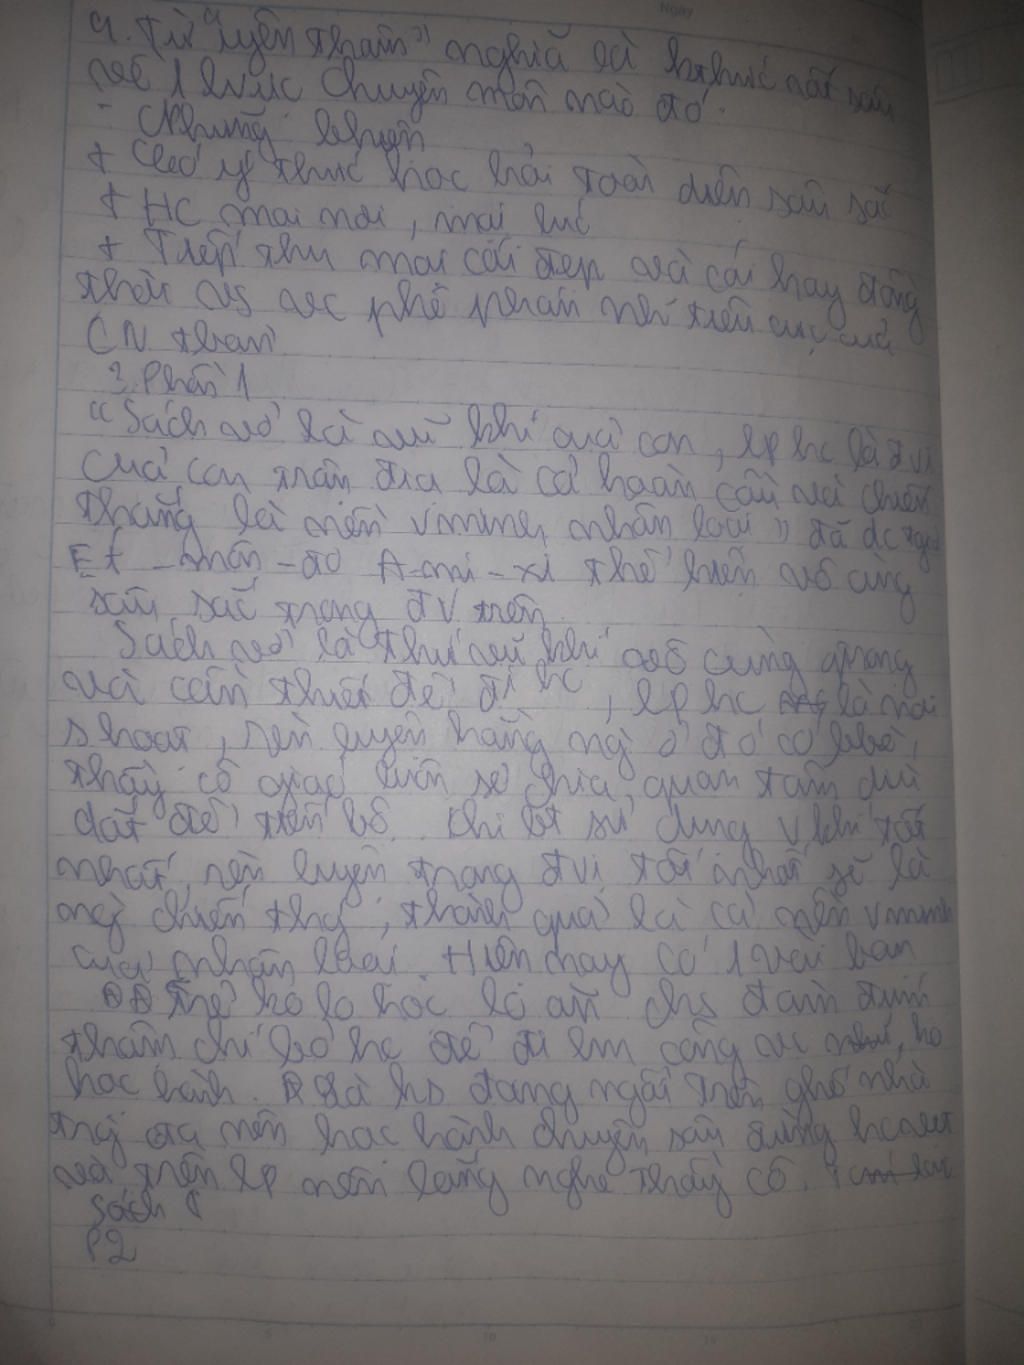 Ngày
4. Từ "uyên thâm" nghĩa là kthức rất sâu
về 1 lvực chuyên môn nào đó.
- Nhưng khuyên
+ Có ý thức học hỏi toàn diện sâu sắc
+ HC mọi nơi, mọi lúc
+ Tiếp thu mọi cái đẹp và cái hay đồng
thời vs vc phê phán nh tiêu cực của
CN thân
3. Phần 1
"Sách vở là vũ khí của con, lp hc là đvị
của con trận địa là cả hoàn cầu và chiến
thắng là nền vminh nhân loại" đã đc tgiả
Ét-môn-đô A-mi-xi thể hiện vô cùng
sâu sắc trong đv trên.
Sách vở là thứ vũ khí vô cùng qtrọng
và cần thiết để đi hc, lp hc là nơi
shoạt, rèn luyện hằng ng ở đó có bbè,
thầy cô giáo luôn sẻ chia, quan tâm dìu
dắt để tiến bộ. Khi bt sử dụng vkhí tốt
nhất, rèn luyện trong đvị tốt nhất sẽ là
ng chiến thg, thành quả là cả nền vminh
của nhân loại. Hiện nay có 1 vài bạn
trẻ ko lo học lo ăn chs đàm đúm
thậm chí bỏ hc để đi lm công vc, ko
học hành. Là hs đang ngồi trên ghế nhà
trg ta nên học hành chuyên sâu đừng hc vẹt
và trên lp nên lắng nghe thầy cô.
sách
P2